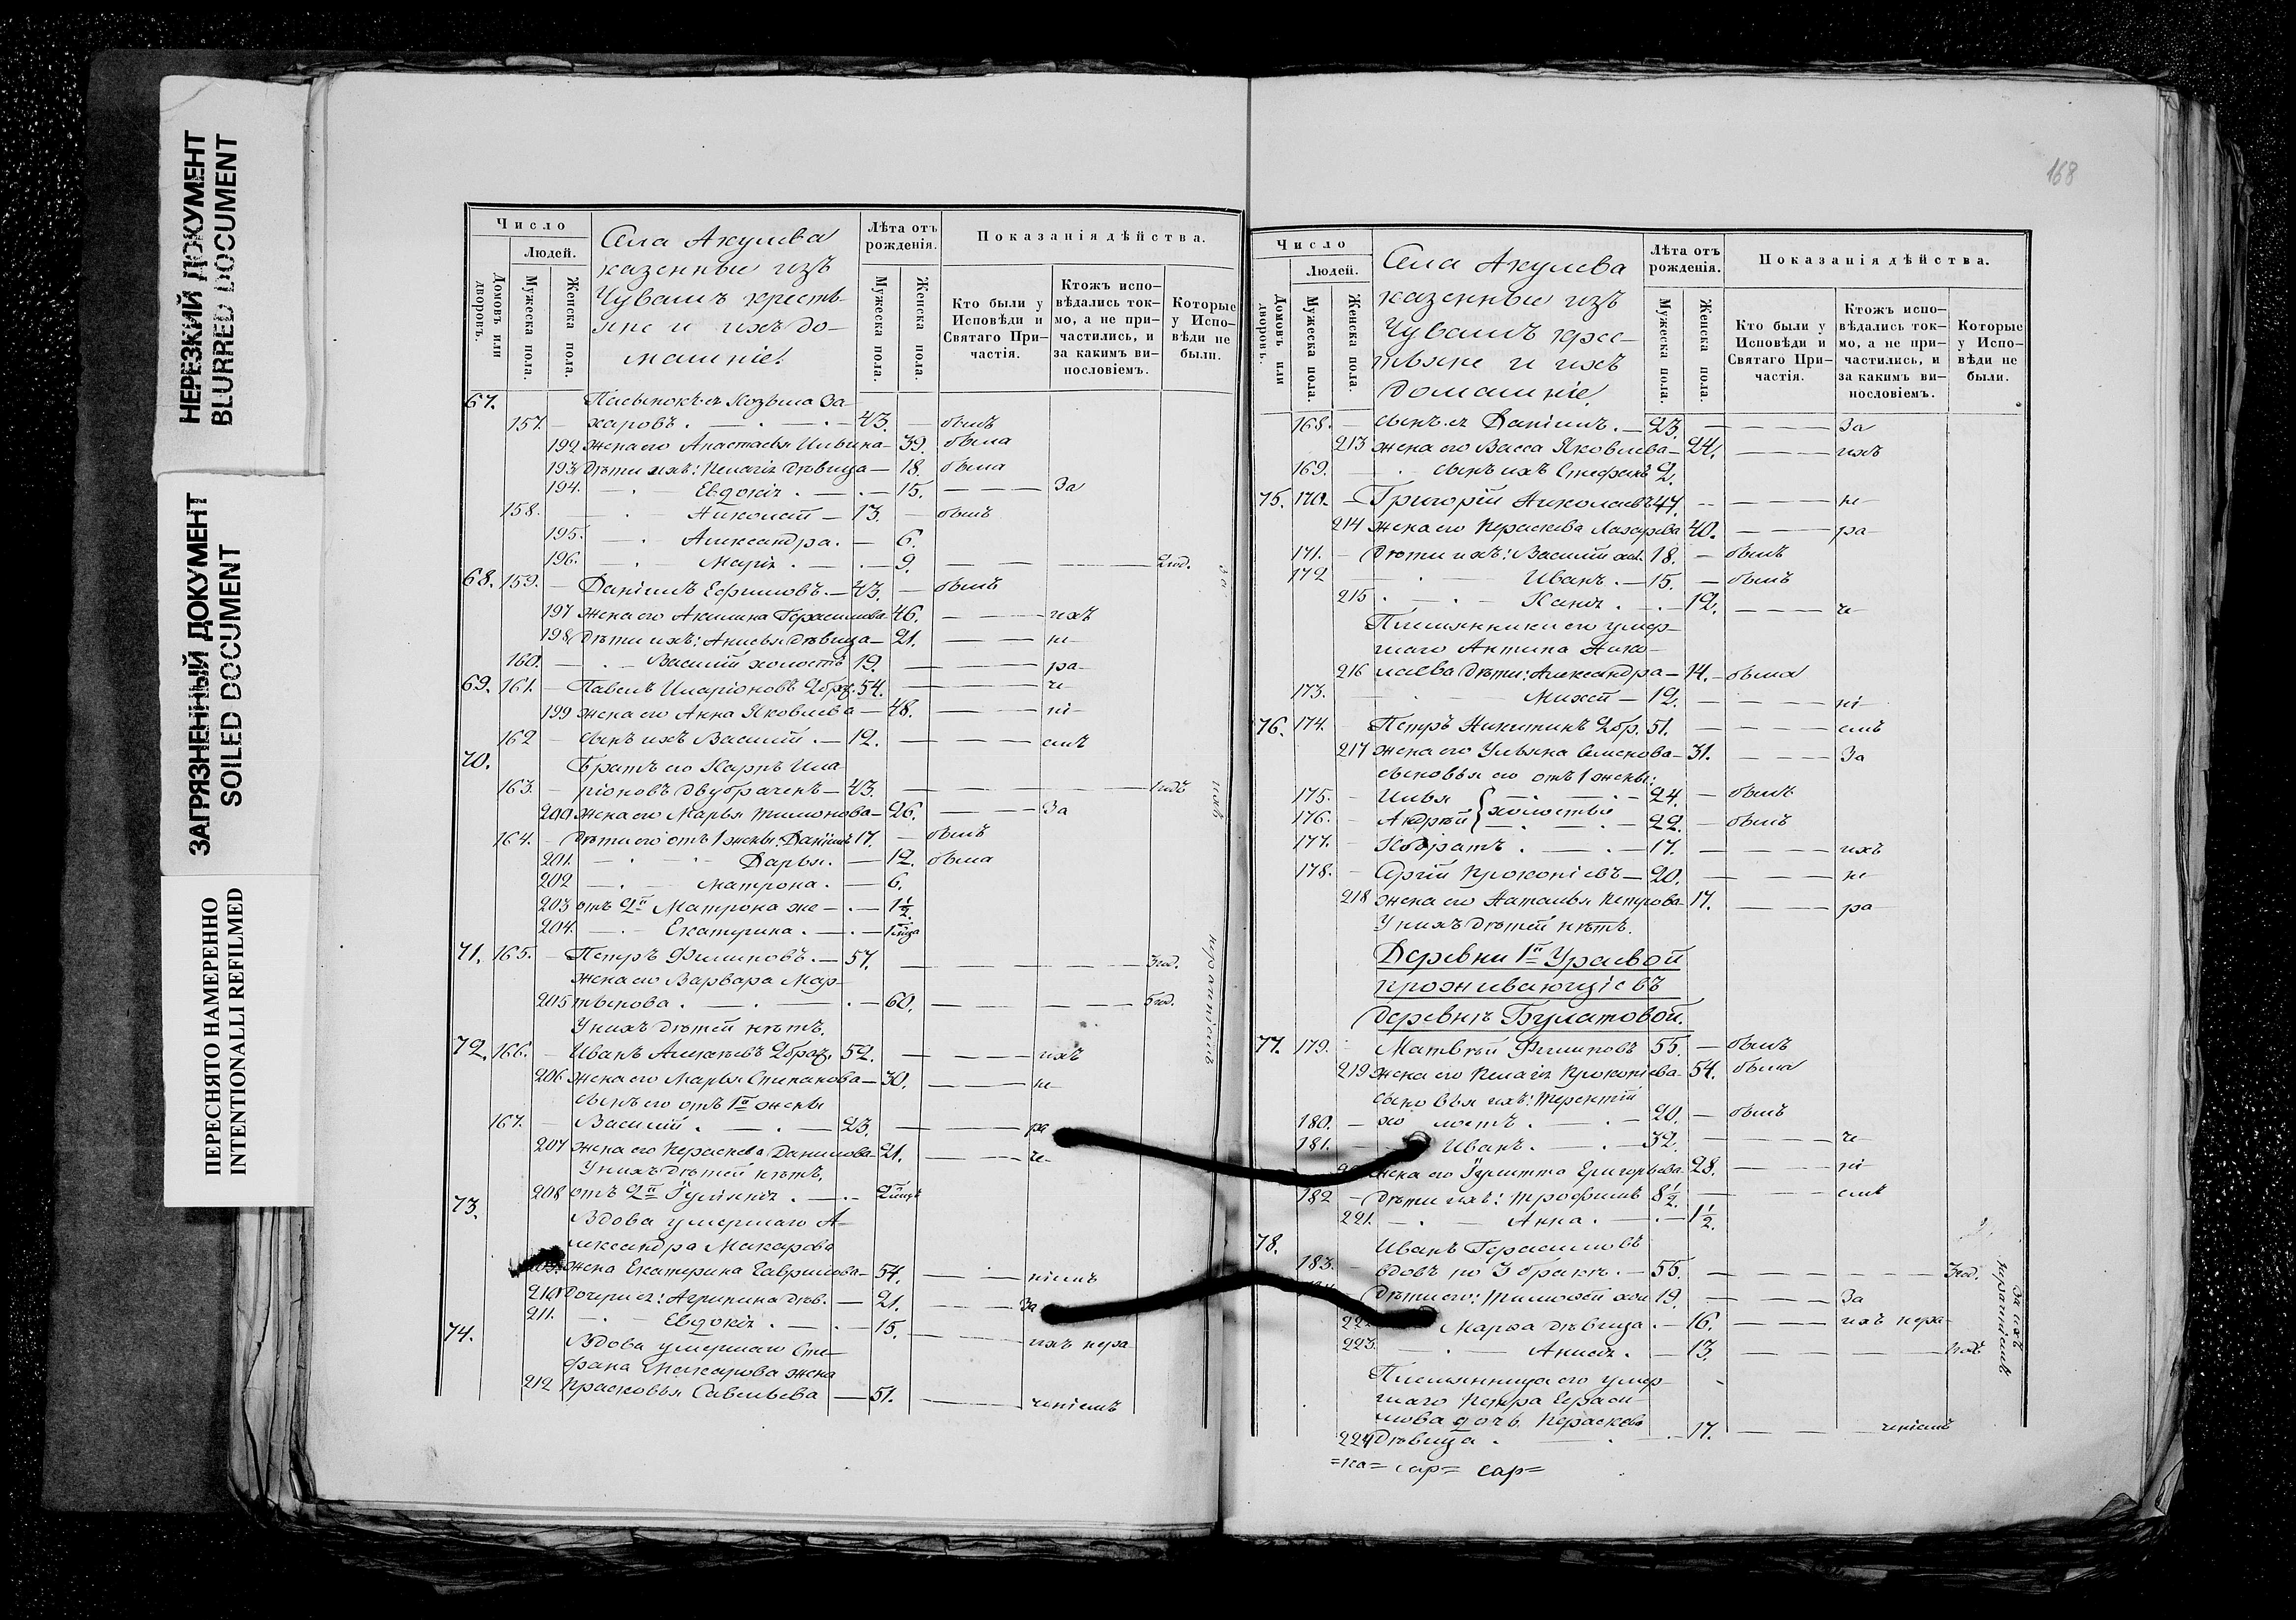 НЕРЕЗКИЙ ДОКУМЕНТ
BLURRED DOCUMENT
ЗАГРЯЗНЕННЫЙ ДОКУМЕНТ
SOILED DOCUMENT
ПЕРЕСНЯТО НАМЕРЕННО
INTENTIONALLI REFILMED
Число
Людей.
Домовъ или дворовъ.
Мужеска пола.
Женска пола.
Села Акулева
казенные изъ
Чувашъ кресть-
яне и ихъ до-
машніе.
Лѣта отъ рожденія.
Мужеска пола.
Женска пола.
Показанія дѣйства.
Кто были у Исповѣди и Святаго При-частія.
Ктожъ испо-вѣдались ток-мо, а не при-частились, и за какимъ ви-нословіемъ.
Которые у Испо-вѣди не были.
67. Пасынокъ ея Козьма За-
157. харовъ 43. былъ
192 жена его Анастасья Ильина 39. была
193 Дѣти ихъ: Пелагія дѣвица 18. была
194. Евдокія 15. За
158. Николай 13. былъ
195. Александра. 6.
196. Марія 9. 2 год.
68. 159. Даніилъ Ефимовъ. 43. былъ
197 жена его Акилина Герасимова 46. ихъ
198 Дѣти ихъ: Анисья дѣвица 21. не
160. Василій холостъ 19. ра
69. 161. Павелъ Иларіоновъ 2брач. 54. че
199 жена его Анна Яковлева 48. ні
162 сынъ ихъ Василій 12. емъ
70. Братъ его Карпъ Ила-
163. ріоновъ двубраченъ 43. 1 годъ
200 жена его Марья Тимонова 26. За
164. Дѣти его отъ 1 жены: Даніилъ 17. былъ
201. Дарья. 12. была
202 Матрона. 6.
203 отъ 2й Матрона же 1½.
204. Екатерина.
71. 165. Петръ Филиповъ. 57. 3 год.
жена его Варвара Мар-
205 тынова 60. 5 год.
У нихъ дѣтей нѣтъ.
72. 166. Иванъ Алексѣевъ 2брач. 52. ихъ
206 жена его Марья Степанова 30. не
сынъ его отъ 1й жены
167. Василій 23. ра
207 жена его Пераскева Данилова 21. че
У нихъ дѣтей нѣтъ.
208 отъ 2й Гуліанія
73. Вдова умершаго А-
лександра Макарова
209. жена Екатерина Гаврилова 54. ніемъ
210 Дочери ея: Агрипина дѣв. 21. За
211. Евдокія 15. ихъ нера
74. Вдова умершаго Сте-
фана Макарова жена
212 Прасковья Савельева 51. ченіемъ
168
Число
Людей.
Домовъ или дворовъ.
Мужеска пола.
Женска пола.
Села Акулева
казенные изъ
Чувашъ крес-
тьяне и ихъ
домашніе.
Лѣта отъ рожденія.
Мужеска пола.
Женска пола.
Показанія дѣйства.
Кто были у Исповѣди и Святаго При-частія.
Ктожъ испо-вѣдались ток-мо, а не при-частились, и за какимъ ви-нословіемъ.
Которые у Испо-вѣди не были.
168. сынъ ея Даніилъ. 23. За
213 жена его Васса Яковлева 24. ихъ
169. сынъ ихъ Стефанъ 2.
75. 170. Григорій Николаевъ 47. не
214 жена его Пераскева Лазарева 40. ра
171. Дѣти ихъ: Василій хол. 18. былъ
172 Иванъ. 15. былъ
215 Ксенія 12. че
Племянники его умер-
шаго Антипа Нико-
216 лаева дѣти: Александра 14. была
173. 12. ні
76. 174. Петръ Никитинъ 2бр. 51. емъ
217 жена его Ульяна Семенова 31. За
сыновья его отъ 1 жены:
175. Илья } холостые 24. былъ
176. Андрей 22. былъ
177. Кодратъ 17. ихъ
178. Сергій Прокопіевъ 20. не
218 жена его Наталья Петрова 17. ра
У нихъ дѣтей нѣтъ.
Деревни 1й Ураевой
проживающіе въ
деревнѣ Булатовой.
77. 179. Матвѣй Филиповъ 55. былъ
219 жена его Пелагія Прокопіева 54. была
сыновья ихъ: Терентій
180. холостъ 20. былъ
181. Иванъ. 32. че
жена его Гулитта Григорьева 28. ні
182 Дѣти ихъ: Трофимъ 8½ емъ
221. Анна. 1½.
78. Иванъ Герасимовъ
183. вдовъ по 3 бракѣ. 55. 3 год.
Дѣти его: Тимофей хол 19. За
222 Марѳа дѣвица 16. ихъ нера-
223. Анисія. 13. 1 годъ
Племянница его умер-
шаго Петра Гераси-
мова дочь Пераскева
224 дѣвица 17. ченіемъ
За ихъ
нераченіемъ